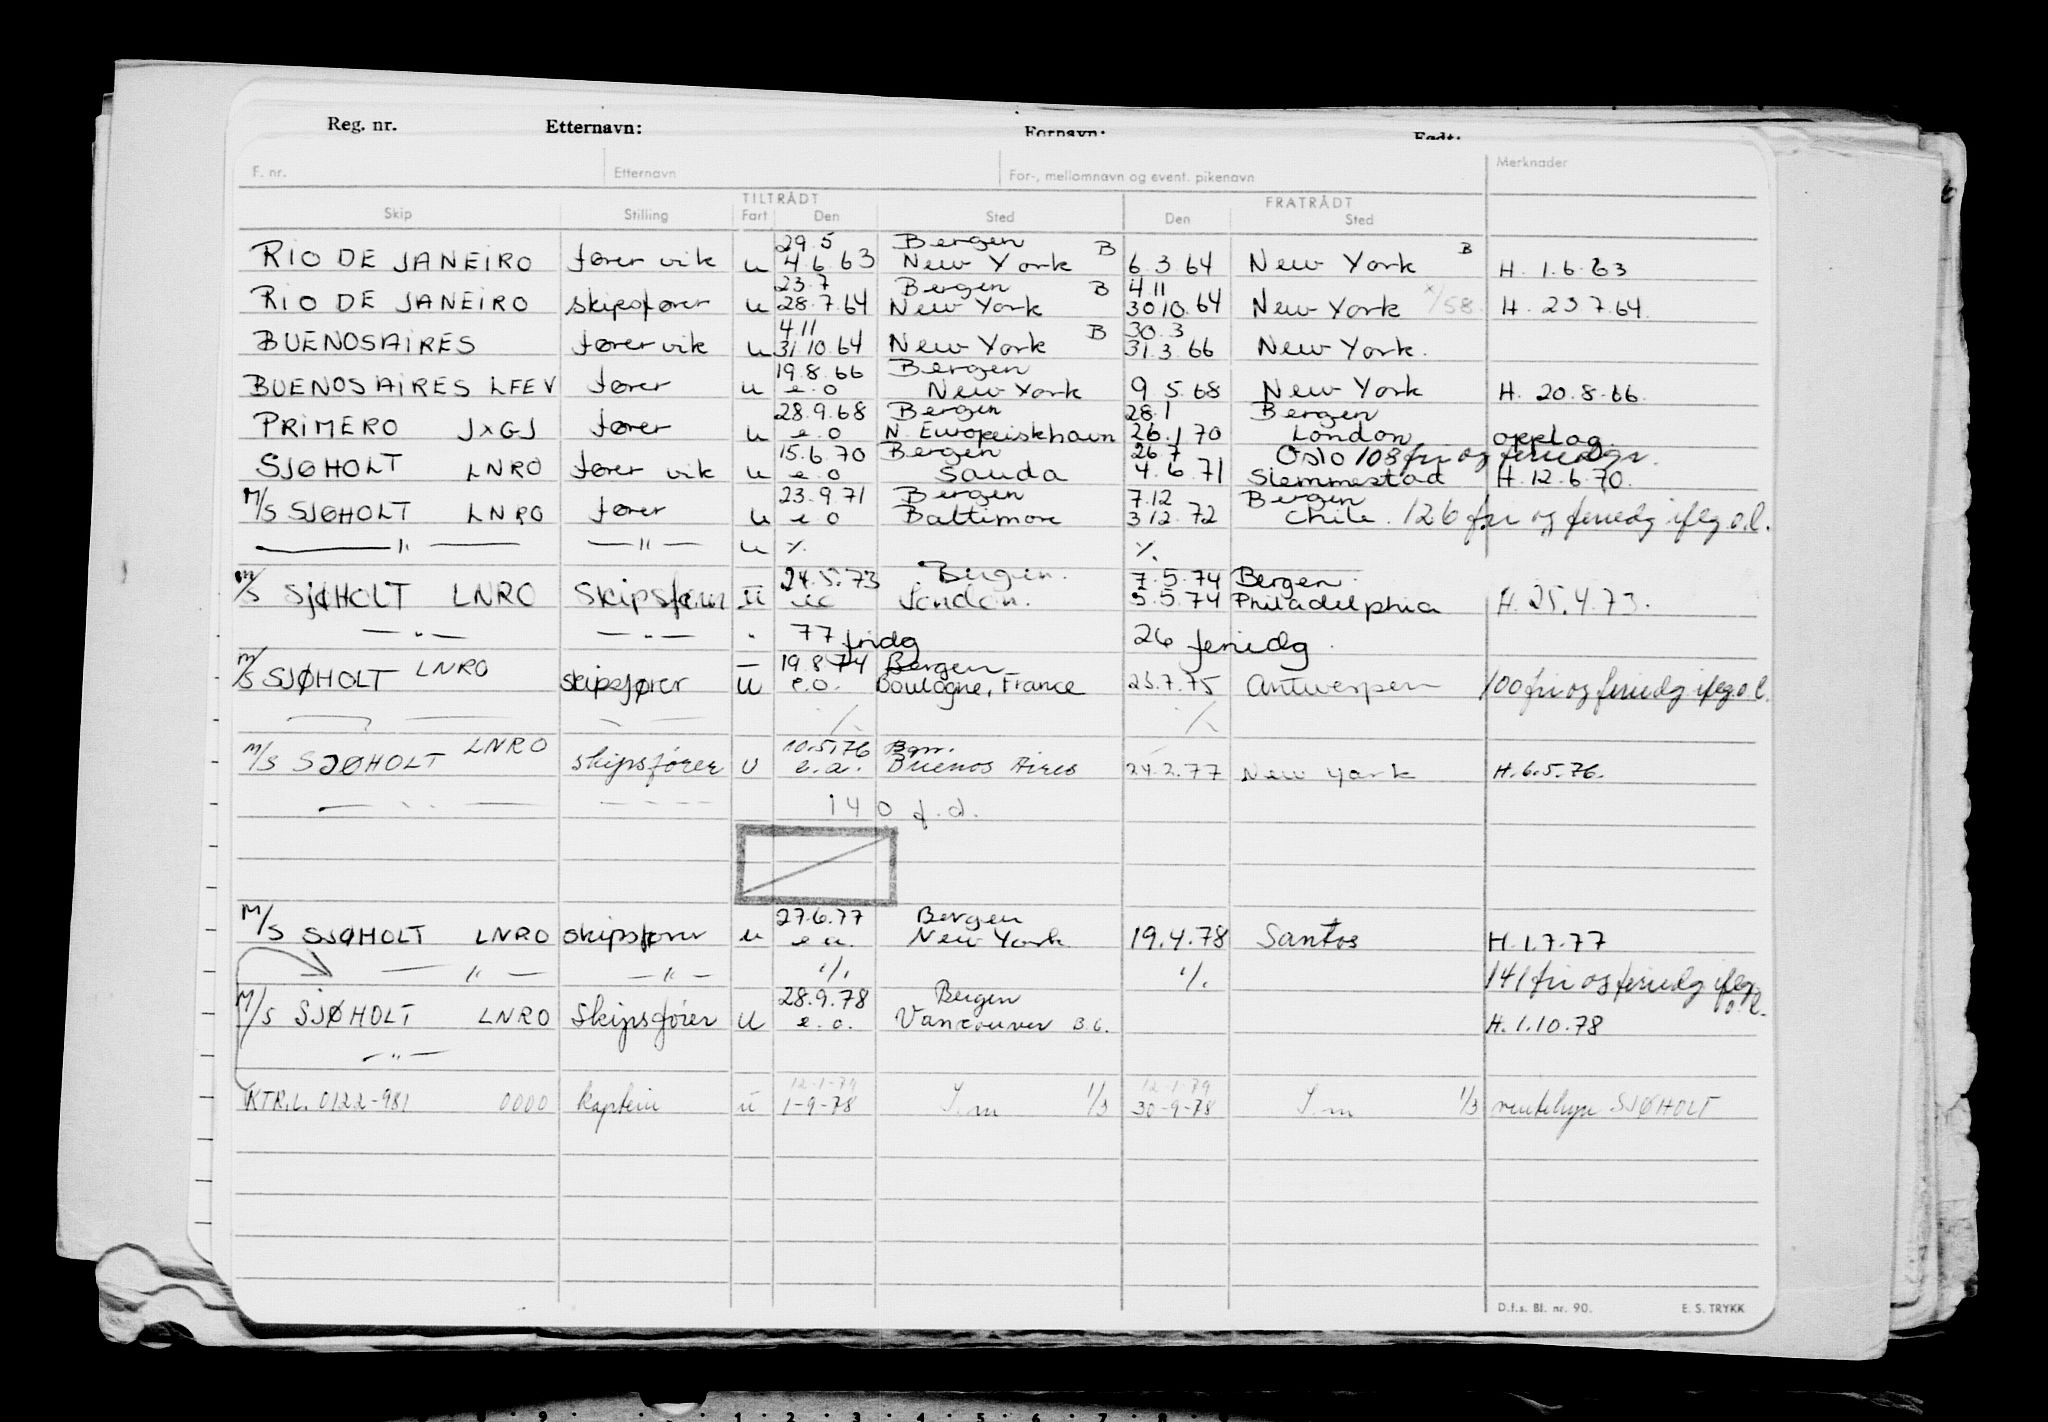 Reg. nr. Etternavn: Fornavn: Født:
F. nr. Etternavn For-, mellomnavn og event. pikenavn Merknader
TILTRÅDT FRATRÅDT
Skip Stilling Fart Den Sted Den Sted
29.5 Bergen
RIO DE JANEIRO fører vik u 4.6.63 New York B 6.3.64 New York B H. 1.6.63
23.7 Bergen 4.11
RIO DE JANEIRO skipsfører u 28.7.64 New York B 30.10.64 New York x/58 H. 23.7.64.
4.11 30.3
BUENOSAIRES fører vik u 31.10.64 New York B 31.3.66 New York.
19.8.66 Bergen
BUENOSAIRES LFEV fører u e.o New York 9.5.68 New York H. 20.8.66.
28.9.68 Bergen 28.1 Bergen
PRIMERO JXGJ fører u e.o N. Europeisk havn 26.1.70 London opplag.
15.6.70 Bergen 26.7 Oslo 108 fri og feriedgr.
SJØHOLT LNRO fører vik u e.o Sauda 4.6.71 Slemmestad H. 12.6.70.
23.9.71 Bergen 7.12 Bergen
M/S SJØHOLT LNRO fører u e o Baltimore 3.12.72 Chile. 126 fri og feriedg iflg o.l.
— " — — " — u ·/. ·/.
24.5.73 Bergen. 7.5.74 Bergen.
M/S SJØHOLT LNRO Skipsfører u London. 5.5.74 Philadelphia H. 25.4.73.
— " — — " — " 77 fridg 26 feriedg.
— 19.8.74 Bergen
M/S SJØHOLT LNRO skipsfører u e.o. Boulogne, France 23.7.75 Antwerpen 100 fri og feriedg iflg o.l.
·/. ·/.
10.5.76 Bgn.
M/S SJØHOLT LNRO skipsfører u e.a. Buenos Aires 24.2.77 New York H. 6.5.76.
— " — — — — — 140 f.d.
27.6.77 Bergen
M/S SJØHOLT LNRO skipsfører u e.a. New York 19.4.78 Santos H. 1.7.77
— " — — " — ·/. ·/. 141 fri og feriedg iflg o.l.
28.9.78 Bergen
M/S SJØHOLT LNRO Skipsfører u e.o. Vancouver B.C. H. 1.10.78
— " —
12-1-79 12-1-79
KTR.L. 0122-981 0000 kaptein u 1-9-78 I.m 1/3 30-9-78 I.m 1/3 ventehyre SJØHOLT
D.f.s. Bl. nr. 90. E. S. TRYKK